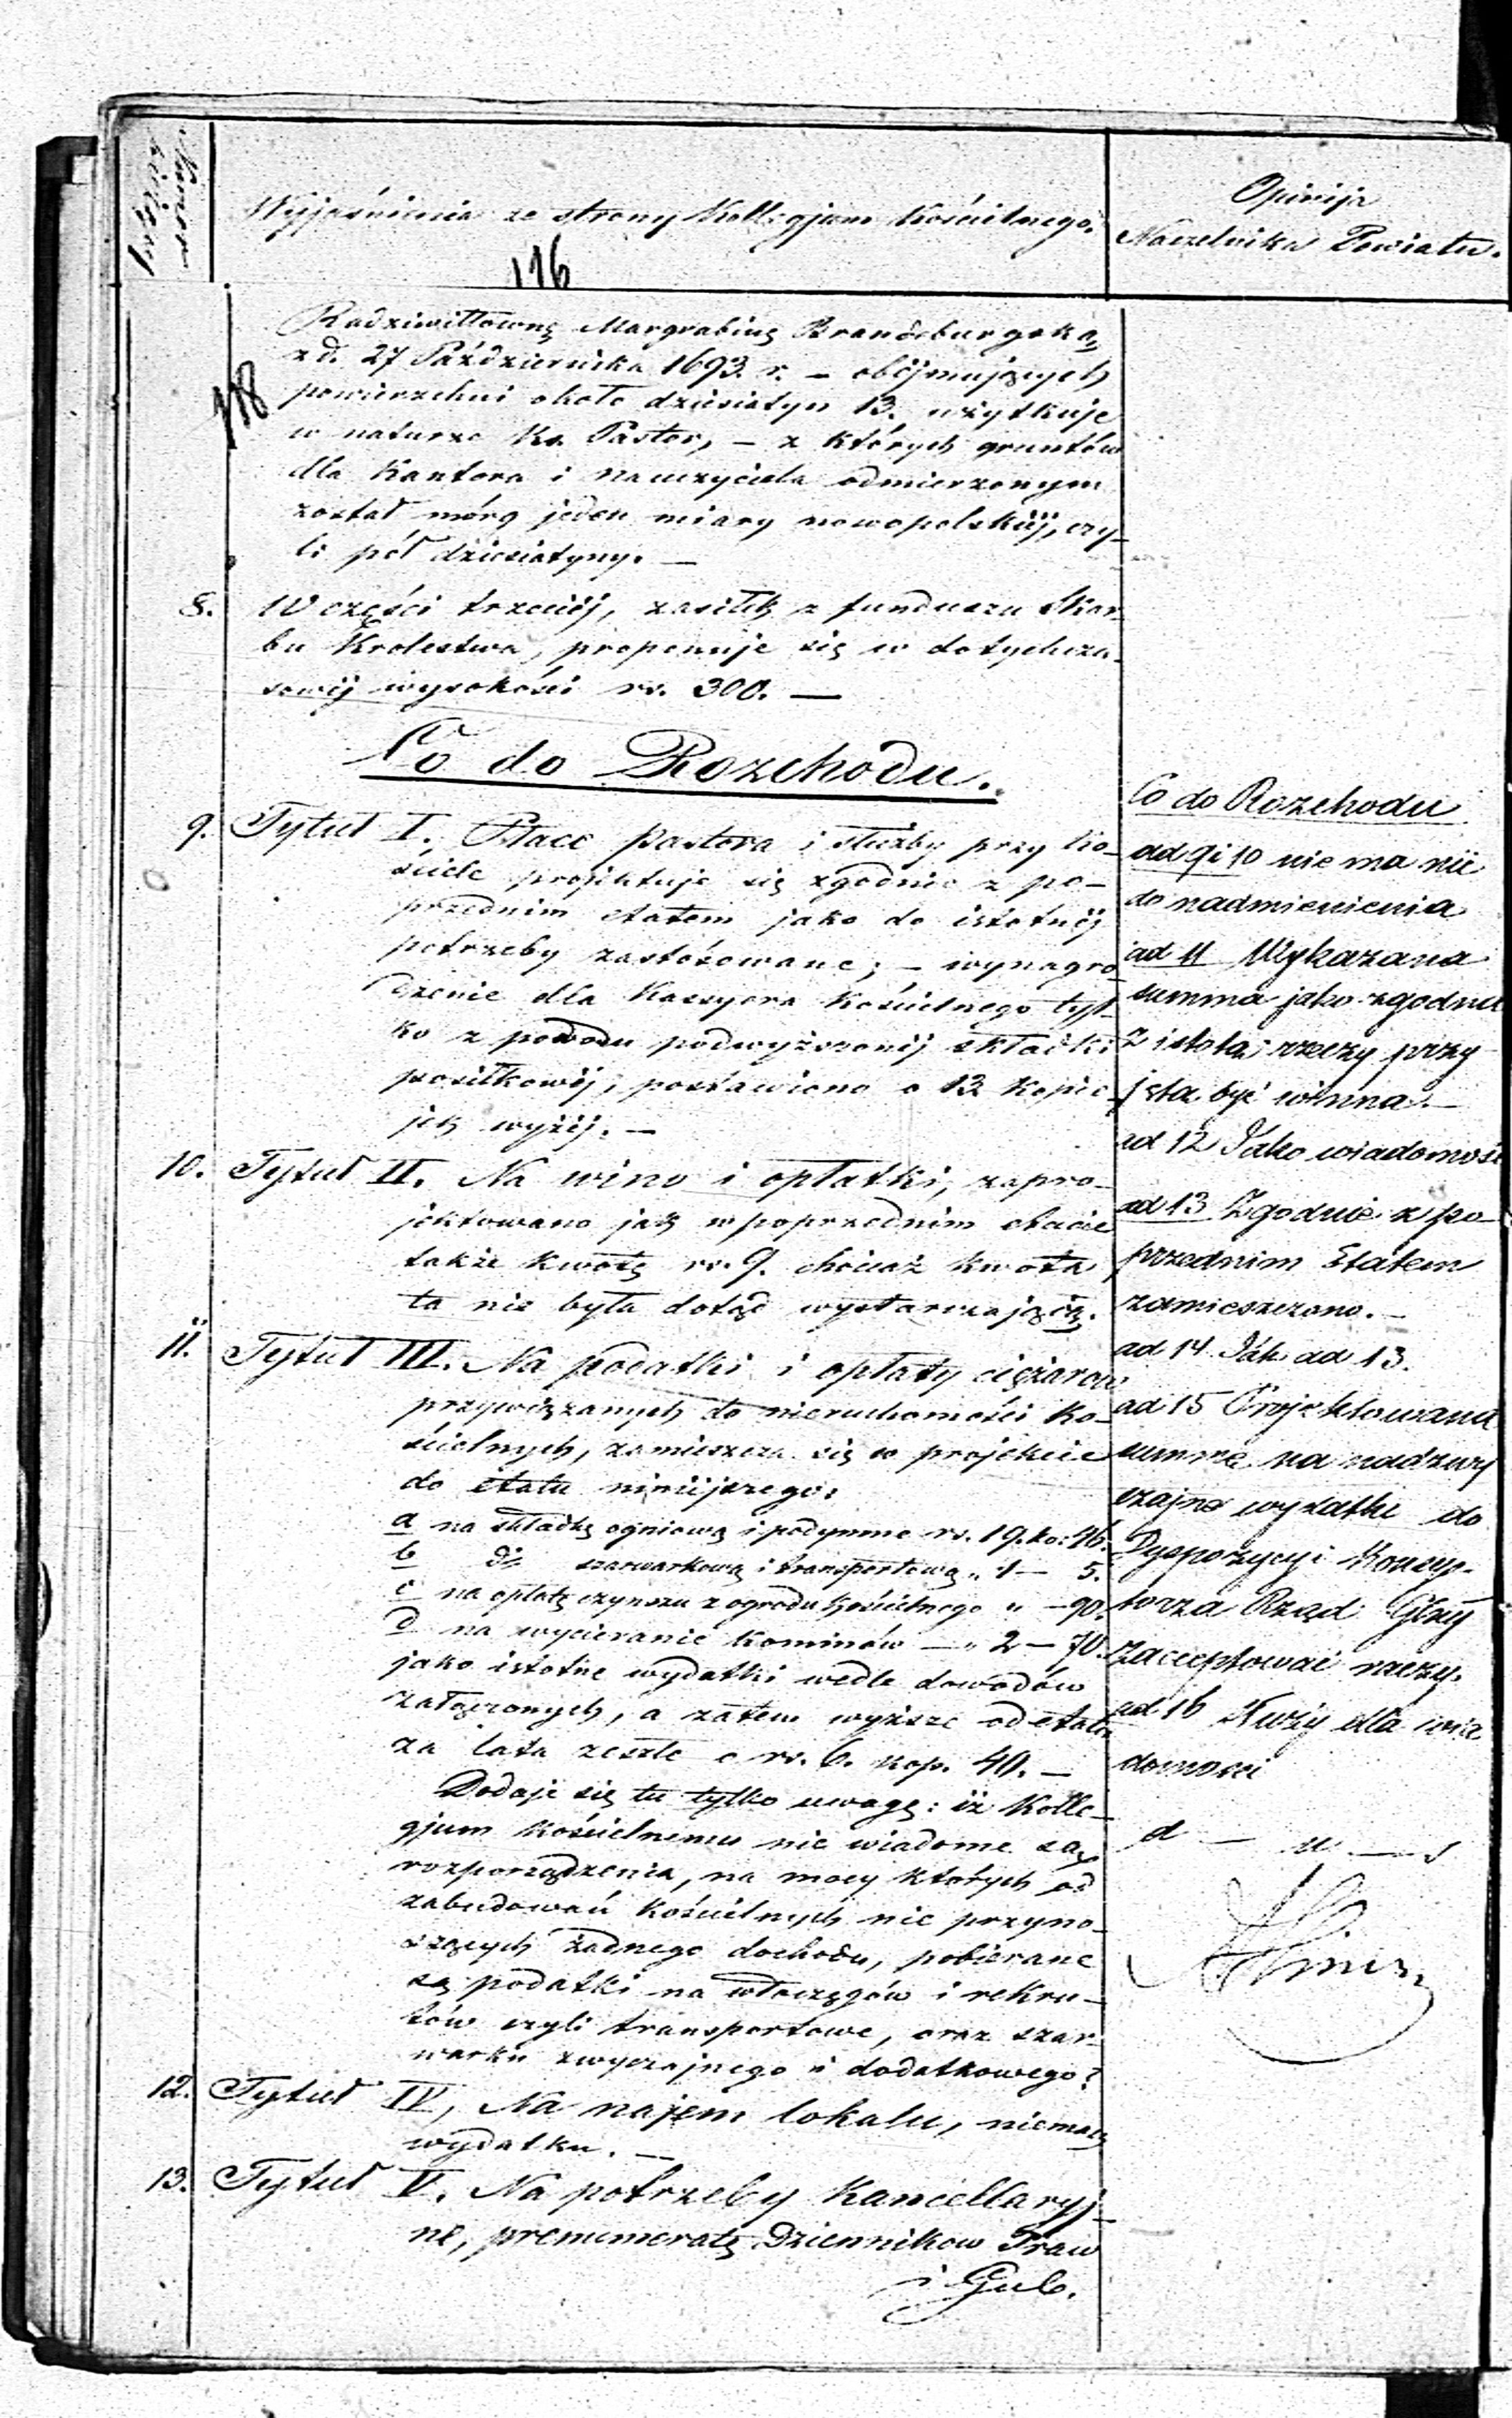 Numer
bieżący
Wyjaśnienia ze strony Kollegjum Kościelnego.
Opinija
Naczelnika Powiatu.
116
118
Radziwiłłowną Margrabiną Brandeburgską
z d. 27 Października 1693. r. – obejmujących
powierzchni około dziesiatyn 13. użytkuje
w naturze Ks. Pastor, – z których gruntów
dla Kantora i nauczyciela odmierzonym
został mórg jeden miary nowopolskiej, czy-
li pół dziesiatyny. –
8. W części trzeciéj, zasiłek z funduszu Skar-
bu Krolestwa, proponuje się w dotychcza-
sowéj wysokości rs. 300. –
Co do Rozchodu.
9. Tytuł I. Płace Pastora i służby przy Ko-
ściele projektuje się zgodnie z po-
przednim etatem jako do istotnéj
potrzeby zastósowane; – wynagro
dzenie dla Kassyera Kościelnego tyl-
ko z powodu podwyższonéj składki
posiłkowéj, postawiono o 13 kopie-
jek wyżéj. –
10. Tytuł II. Na wino i opłatki, zapro-
jektowano jak w poprzednim etacie
także kwotę rs. 9. chociaż kwota
ta nie była dotąd wystarczającą.
11. Tytuł III. Na podatki i opłaty ciężarow
przywiązanych do nieruchomości Ko-
ścielnych, zamieszcza się w projekcie
do etatu niniejszego:
a na składkę ogniową i podymne rs. 19. ko: 46.
b do szarwarkową i transportową „ 1 – 5.
c na opłatę czynszu z ogrodu Kościelnego „ – 90.
d na wycieranie kominów – „ 2 – 70.
jako istotne wydatki wedle dowodów
załączonych, a zatem wyższe od etatu
za lata zeszłe o rs. 6. kop. 40. –
Dodaje się tu tylko uwagę: iż Kolle-
gjum Kościelnemu nie wiadome są
rozporządzenia, na mocy których od
zabudowań Kościelnych nie przyno-
szących żadnego dochodu, pobierane
są podatki na włoczęgów i rekru-
tów czyli transportowe, oraz szar-
warku zwyczajnego i dodatkowego?
12. Tytuł IV, Na najem lokalu, niema
wydatku. –
13. Tytuł V. Na potrzeby Kancellaryj-
ne, prenumeratę Dziennikow Praw
i Gub.
Co do Rozchodu
ad 9 i 10 nie ma nic
do nadmienienia
ad 11 Wykazana
summa jako zgodna
z istotą rzeczy przy-
jęta być winna. –
ad 12 Jako wiadomość
ad 13 Zgodnie z po
przednim Etatem
zamieszczono. –
ad 14 Jak ad 13.
ad 15 Projektowana
summę na nadzwy
czajne wydatki do
Dyspozycyi Konsys-
torza Rząd Głny
zaceptować raczy.
ad 16 Służy dla wia
domosci